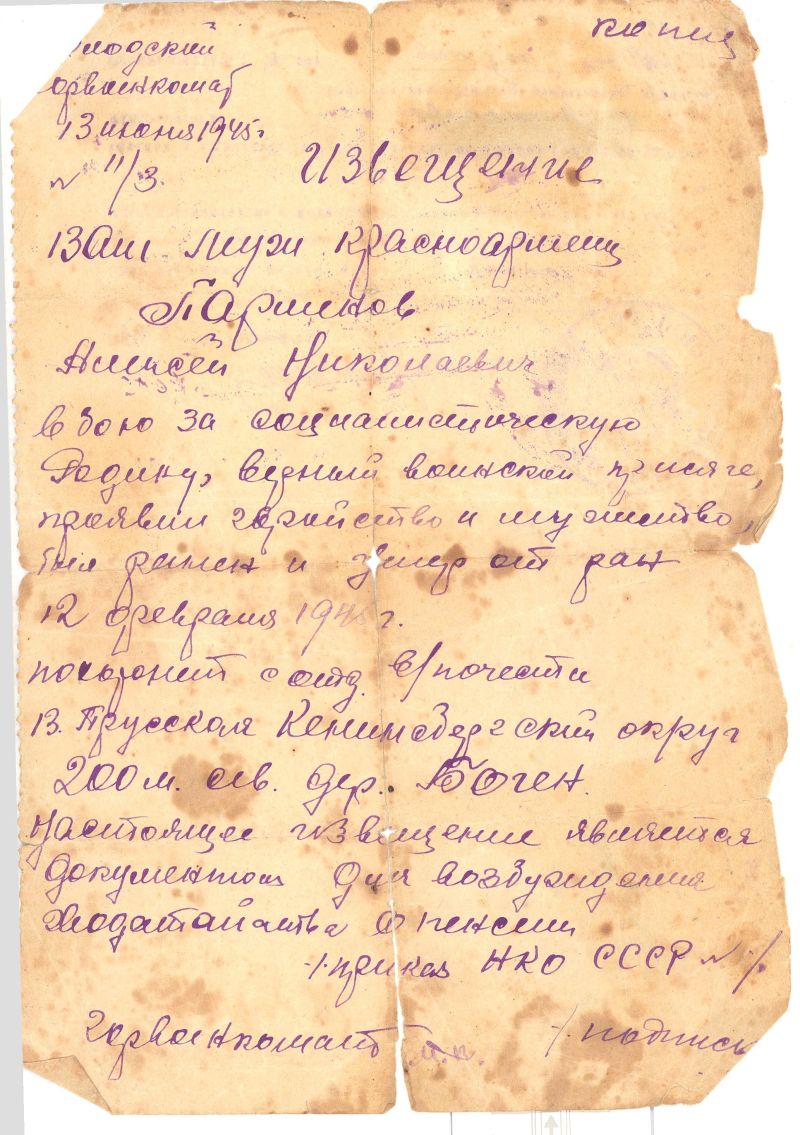 копия
лодский
орвоенкомат
13 июня 1945г
№ 11/3.
Извещение
Ваш муж красноармеец
Парменов
Алексей Николаевич
в бою за социалистическую
Родину, верный воинской присяге,
проявил геройство и мужество,
был ранен и умер от ран
12 февраля 194 г.
похоронен с отд. в/почести
В. Прусская Кенигсбергский округ
200 м. сев. дер. Боген.
Настоящее извещение является
документом для возбуждения
ходатайства о пенсии
приказ НКО СССР №
Горвоенкомат м.п. /подпись